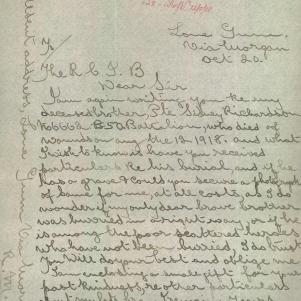 Lone Gum
Via Morgan
Oct 20.
To
The R C I B
Dear Sir
I am again writing you re my
deceased brother, Pte Sidney Richardson
No 6662 B 50 Battalion, who died of
wounds on aug the 12. 1918. and what
I wish to know is have you received
particulars re his burial, and if he
has a grave & could you secure a photograph
of same for me, at all costs, as I do
wonder if my only dear brave brother
was burried in a right way, or if he
is among the poor scattered heroes
who have not been burried, I do trust
you will do your best and oblige me
I am enclosing a small gift for your
past kindness, re other particulars
Present address, Lone Gum Via Morgan